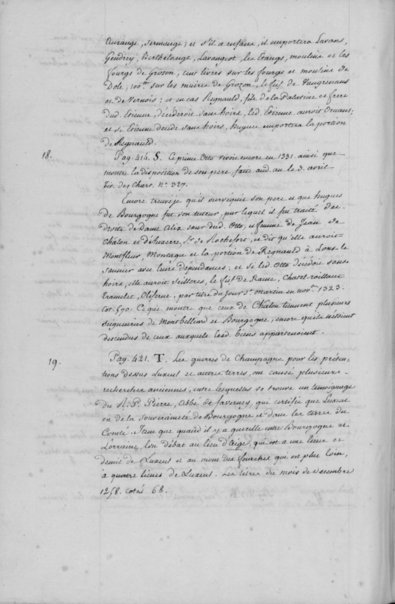 Ourange, Sermange; et s'il a enfans, il emportera Lavans,
Gendrey, Berthelange, Lavangeot, les Etangs, moulins et les
fourgs de Grozon, cent livres sur les fourgs et moulins de
Dole, 100 sur les muires de Grozon, le fief de Vaugrenans
et de Vernois; et en cas Regnauld, fils de la Palatine et frere
dud. Etienne, decederoit sans hoirs, led. Etienne auroit Ornans;
et si Etienne decede sans hoirs, Hugues emportera la portion
de Regnauld.
18. Pag. 414. S. Ce prince Otto vivoit encore en 1331 ainsi que
montre la disposition de son pere faite aud. an le 3 avril
Lit. des Chars. N.° 327.
Encore treuve je qu'il survéquit son pere et que Hugues
de Bourgogne fut son tuteur, par lequel il fut traité des
droits de dame Alix sœur dud. Otto, et femme de Jean de
Chalon et d'Auxerre, S.r de Rochefort, et dit qu'elle auroit
Montfleur, Montaigu et la portion de Regnauld à Lons le
saunier avec leurs dépendances; et se led. Otto décédoit sans
hoirs, elle auroit
Oiselene, par titre du jour S.t Martin en nov.re 1323.
cot. 590. Ce que montre que ceux de Chalon tiennent plusieurs
seigneuries de Montbelliard et Bourgogne, encore qu'ils ne soient
descendus de ceux auxquels lesd. biens appartenoient.
19. Pag. 421. T. Les guerres de Champagne pour les préten-
tions dessus Luxeul et autres terres, ont causé plusieurs
recherches anciennes, entre lesquelles se trouve un témoignage
du R. P. Pierre, Abbé de Faverney, qui certifie que Luxeul
est de la souveraineté de Bourgogne et dans les terres du
Comté. Item que quand il y a querelle entre Bourgogne et
Lorraine, l'on débat au lieu d'Aige, qui est a une lieue et
demie de Luxeul et au mont des fourches qui est plus loin,
à quatre lieues de Luxeul. Les lettres du mois de decembre
1258. cotés 68.